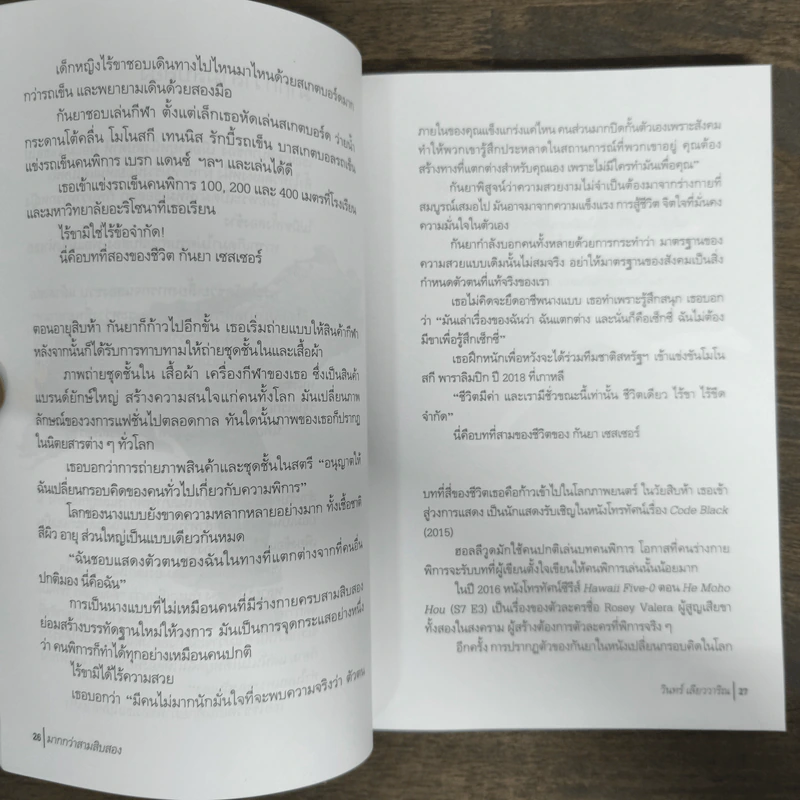 เด็กหญิงไร้ขาชอบเดินทางไปไหนมาไหนด้วยสเกตบอร์ดมาก
กว่ารถเข็น และพยายามเดินด้วยสองมือ
กันยาชอบเล่นกีฬา ตั้งแต่เล็กเธอหัดเล่นสเกตบอร์ด ว่ายน้ำ
กระดานโต้คลื่น โมโนสกี เทนนิส รักบี้รถเข็น บาสเกตบอลรถเข็น
แข่งรถเข็นคนพิการ เบรก แดนซ์ ฯลฯ และเล่นได้ดี
เธอเข้าแข่งรถเข็นคนพิการ 100, 200 และ 400 เมตรที่โรงเรียน
และมหาวิทยาลัยอะริโซนาที่เธอเรียน
ไร้ขามิใช่ไร้ข้อจำกัด!
นี่คือบทที่สองของชีวิต กันยา เซสเซอร์
ตอนอายุสิบห้า กันยาก็ก้าวไปอีกขั้น เธอเริ่มถ่ายแบบให้สินค้ากีฬา
หลังจากนั้นก็ได้รับการทาบทามให้ถ่ายชุดชั้นในและเสื้อผ้า
ภาพถ่ายชุดชั้นใน เสื้อผ้า เครื่องกีฬาของเธอ ซึ่งเป็นสินค้า
แบรนด์ยักษ์ใหญ่ สร้างความสนใจแก่คนทั้งโลก มันเปลี่ยนภาพ
ลักษณ์ของวงการแฟชั่นไปตลอดกาล ทันใดนั้นภาพของเธอก็ปรากฏ
ในนิตยสารต่าง ๆ ทั่วโลก
เธอบอกว่าการถ่ายภาพสินค้าและชุดชั้นในสตรี “อนุญาตให้
ฉันเปลี่ยนกรอบคิดของคนทั่วไปเกี่ยวกับความพิการ”
โลกของนางแบบยังขาดความหลากหลายอย่างมาก ทั้งเชื้อชาติ
สีผิว อายุ ส่วนใหญ่เป็นแบบเดียวกันหมด
“ฉันชอบแสดงตัวตนของฉันในทางที่แตกต่างจากที่คนอื่น
ปกติมอง นี่คือฉัน”
การเป็นนางแบบที่ไม่เหมือนคนที่มีร่างกายครบสามสิบสอง
ย่อมสร้างบรรทัดฐานใหม่ให้วงการ มันเป็นการจุดกระแสอย่างหนึ่ง
ว่า คนพิการก็ทำได้ทุกอย่างเหมือนคนปกติ
ไร้ขามิได้ไร้ความสวย
เธอบอกว่า “มีคนไม่มากนักมั่นใจที่จะพบความจริงว่า ตัวตน
26 มากกว่าสามสิบสอง
ภายในของคุณแข็งแกร่งแค่ไหน คนส่วนมากปิดกั้นตัวเองเพราะสังคม
ทำให้พวกเขารู้สึกประหลาดในสถานการณ์ที่พวกเขาอยู่ คุณต้อง
สร้างทางที่แตกต่างสำหรับคุณเอง เพราะไม่มีใครทำมันเพื่อคุณ”
กันยาพิสูจน์ว่าความสวยงามไม่จำเป็นต้องมาจากร่างกายที่
สมบูรณ์เสมอไป มันอาจมาจากความแข็งแรง การสู้ชีวิต จิตใจที่มั่นคง
ความมั่นใจในตัวเอง
กันยากำลังบอกคนทั้งหลายด้วยการกระทำว่า มาตรฐานของ
ความสวยแบบเดิมนั้นไม่สมจริง อย่าให้มาตรฐานของสังคมเป็นสิ่ง
กำหนดตัวตนที่แท้จริงของเรา
เธอไม่คิดจะยึดอาชีพนางแบบ เธอทำเพราะรู้สึกสนุก เธอบอก
ว่า “มันเล่าเรื่องของฉันว่า ฉันแตกต่าง และนั่นก็คือเซ็กซี่ ฉันไม่ต้อง
มีขาเพื่อรู้สึกเซ็กซี่”
เธอฝึกหนักเพื่อหวังจะได้ร่วมทีมชาติสหรัฐฯ เข้าแข่งขันโมโน
สกี พาราลิมปิก ปี 2018 ที่เกาหลี
“ชีวิตมีค่า และเรามีชั่วขณะนี้เท่านั้น ชีวิตเดียว ไร้ขา ไร้ขีด
จำกัด”
นี่คือบทที่สามของชีวิตของ กันยา เซสเซอร์
บทที่สี่ของชีวิตเธอคือก้าวเข้าไปในโลกภาพยนตร์ ในวัยสิบห้า เธอเข้า
สู่วงการแสดง เป็นนักแสดงรับเชิญในหนังโทรทัศน์เรื่อง Code Black
(2015)
ฮอลลีวูดมักใช้คนปกติเล่นบทคนพิการ โอกาสที่คนร่างกาย
พิการจะรับบทที่ผู้เขียนตั้งใจเขียนให้คนพิการเล่นนั้นน้อยมาก
ในปี 2016 หนังโทรทัศน์ซีรีส์ Hawaii Five-0 ตอน He Moho
Hou (S7 E3) เป็นเรื่องของตัวละครชื่อ Rosey Valera ผู้สูญเสียขา
ทั้งสองในสงคราม ผู้สร้างต้องการตัวละครที่พิการจริง ๆ
อีกครั้ง การปรากฏตัวของกันยาในหนังเปลี่ยนกรอบคิดในโลก
วินทร์ เลียววาริณ 27